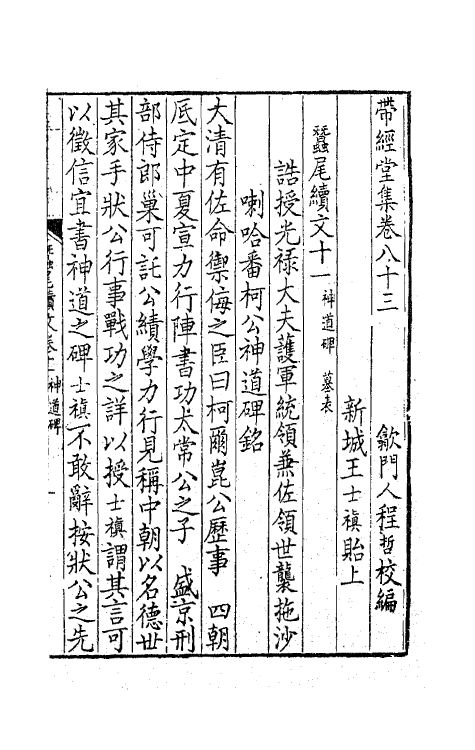 帶經堂集卷八十三
歙門人程哲校編
新城王士禛貽上
蠶尾續文十一 神道碑 墓表
誥授光祿大夫護軍統領兼佐領世襲拖沙
喇哈番柯公神道碑銘
大清有佐命禦侮之臣曰柯爾崑公歷事 四朝
厎定中夏宣力行陣書功太常公之子 盛京刑
部侍郎巢可託公績學力行見稱中朝以名德世
其家手狀公行事戰功之詳以授士禛謂其言可
以徵信宜書神道之碑士禛不敢辭按狀公之先
蠶尾續文卷十一 神道碑 一